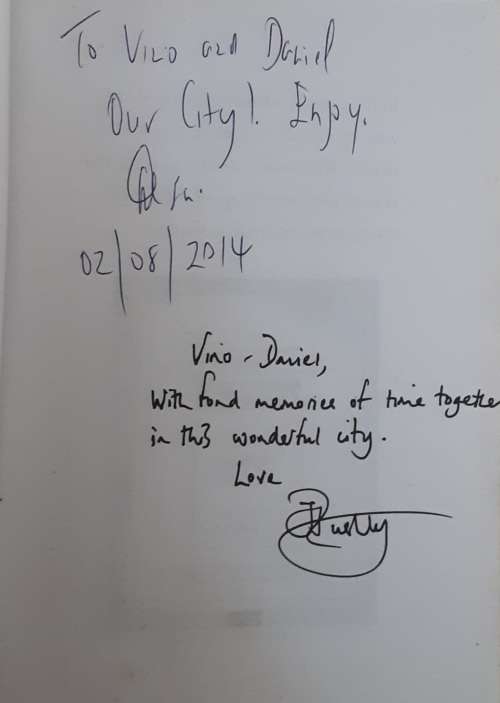 To Vino and Daniel
Our City! Enjoy.
02/08/2014
Vino - Daniel,
With fond memories of time together
in this wonderful city.
Love